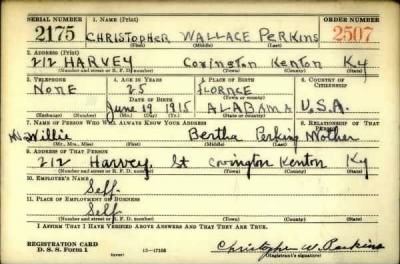 SERIAL NUMBER 1. NAME (Print) ORDER NUMBER
2175 CHRISTOPHER WALLACE PERKINS 2507
(First) (Middle) (Last)
2. ADDRESS (Print)
212 HARVEY Covington Kenton Ky
(Number and street or R. F. D. number) (Town) (County) (State)
3. TELEPHONE 4. AGE IN YEARS 5. PLACE OF BIRTH 6. COUNTRY OF CITIZENSHIP
NONE 25 FLORACE
DATE OF BIRTH (Town or county)
June 19 1915 ALABAMA U.S.A.
(Exchange) (Number) (Mo.) (Day) (Yr.) (State or country)
7. NAME OF PERSON WHO WILL ALWAYS KNOW YOUR ADDRESS 8. RELATIONSHIP OF THAT PERSON
Willie Bertha Perkins Mother
(Mr., Mrs., Miss) (First) (Middle) (Last)
9. ADDRESS OF THAT PERSON
212 Harvey St Covington Kenton Ky
(Number and street or R. F. D. number) (Town) (County) (State)
10. EMPLOYER'S NAME
Self.
11. PLACE OF EMPLOYMENT OR BUSINESS
Self.
(Number and street or R. F. D. number) (Town) (County) (State)
I AFFIRM THAT I HAVE VERIFIED ABOVE ANSWERS AND THAT THEY ARE TRUE.
REGISTRATION CARD
D. S. S. Form 1 (over) 16-17105 Christopher W. Perkins
(Registrant's signature)